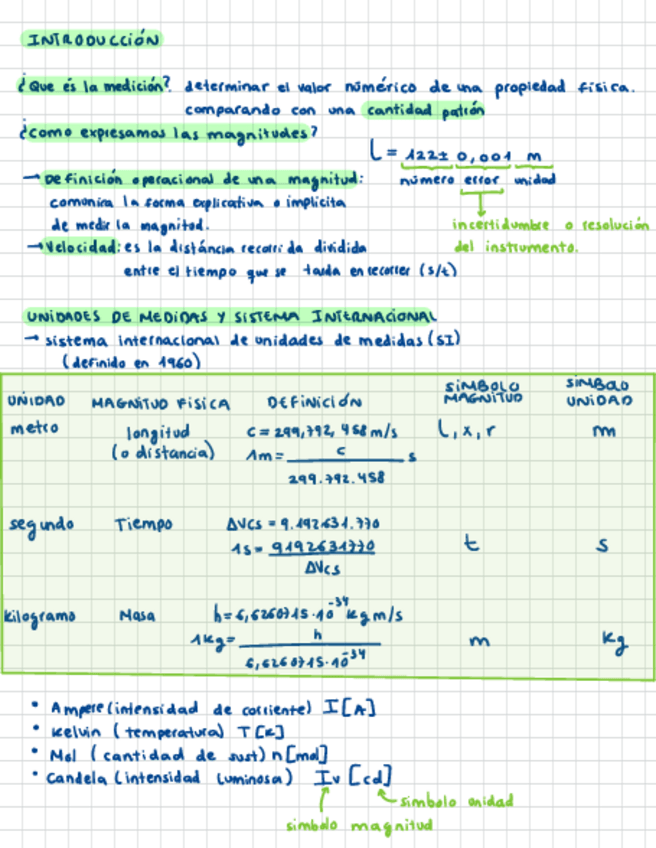 INTRODUCCIÓN
¿Que és la medición?. determinar el valor númérico de una propiedad física.
comparando con una cantidad patrón
¿como expresamos las magnitudes?
L = 122± 0,001 m
número error unidad
→ Definición operacional de una magnitud:
comunica la forma explicativa o implicita
de medir la magnitud.
incertidumbre o resolución
del instrumento.
→ Velocidad: es la distáncia recorrida dividida
entre el tiempo que se tarda en recorrer (s/t)
UNIDADES DE MEDIDAS Y SISTEMA INTERNACIONAL
→ sistema internacional de unidades de medidas (SI)
(definido en 1960)
UNIDAD MAGNITUD FÍSICA DEFINICIÓN SÍMBOLO MAGNITUD SÍMBOLO UNIDAD
metro longitud (o distancia) c = 299,792,458 m/s L, x, r m
1m = c / 299.792.458 s
segundo Tiempo ΔVCS = 9.192.631.770 t s
1s = 9192631770 / ΔVCS
kilogramo Masa h = 6,6260715·10^-34 kg m/s m kg
1kg = h / 6,6260715·10^-34
• Ampere (intensidad de corriente) I [A]
• Kelvin (temperatura) T [K]
• Mol (cantidad de sust) n [mol]
• Candela (intensidad luminosa) Iv [cd]
simbolo unidad
simbolo magnitud